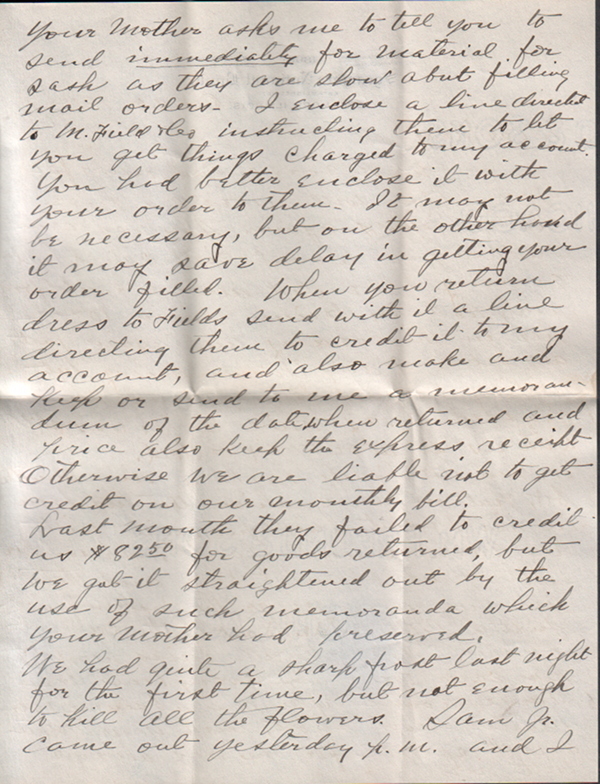 Your Mother asks me to tell you to
send immediately for material for
sash as they are slow abut filling
mail orders - I enclose a line directed
to M. Field & Co instructing them to let
you get things charged to my account.
You had better enclose it with
your order to them - It may not
be necessary, but on the other hand
it may save delay in getting your
order filled. When you return
dress to Fields send with it a line
directing them to credit it to my
account, and also make and
keep or send to me a memoran-
dum of the date when returned and
price also keep the express receipt
Otherwise we are liable not to get
credit on our monthly bill.
Last month they failed to credit
us $82 50 for goods returned, but
we got it straightened out by the
use of such memoranda which
your Mother had preserved.
We had quite a sharp frost last night
for the first time, but not enough
to kill all the flowers. Sam Jr.
came out yesterday p. m. and I